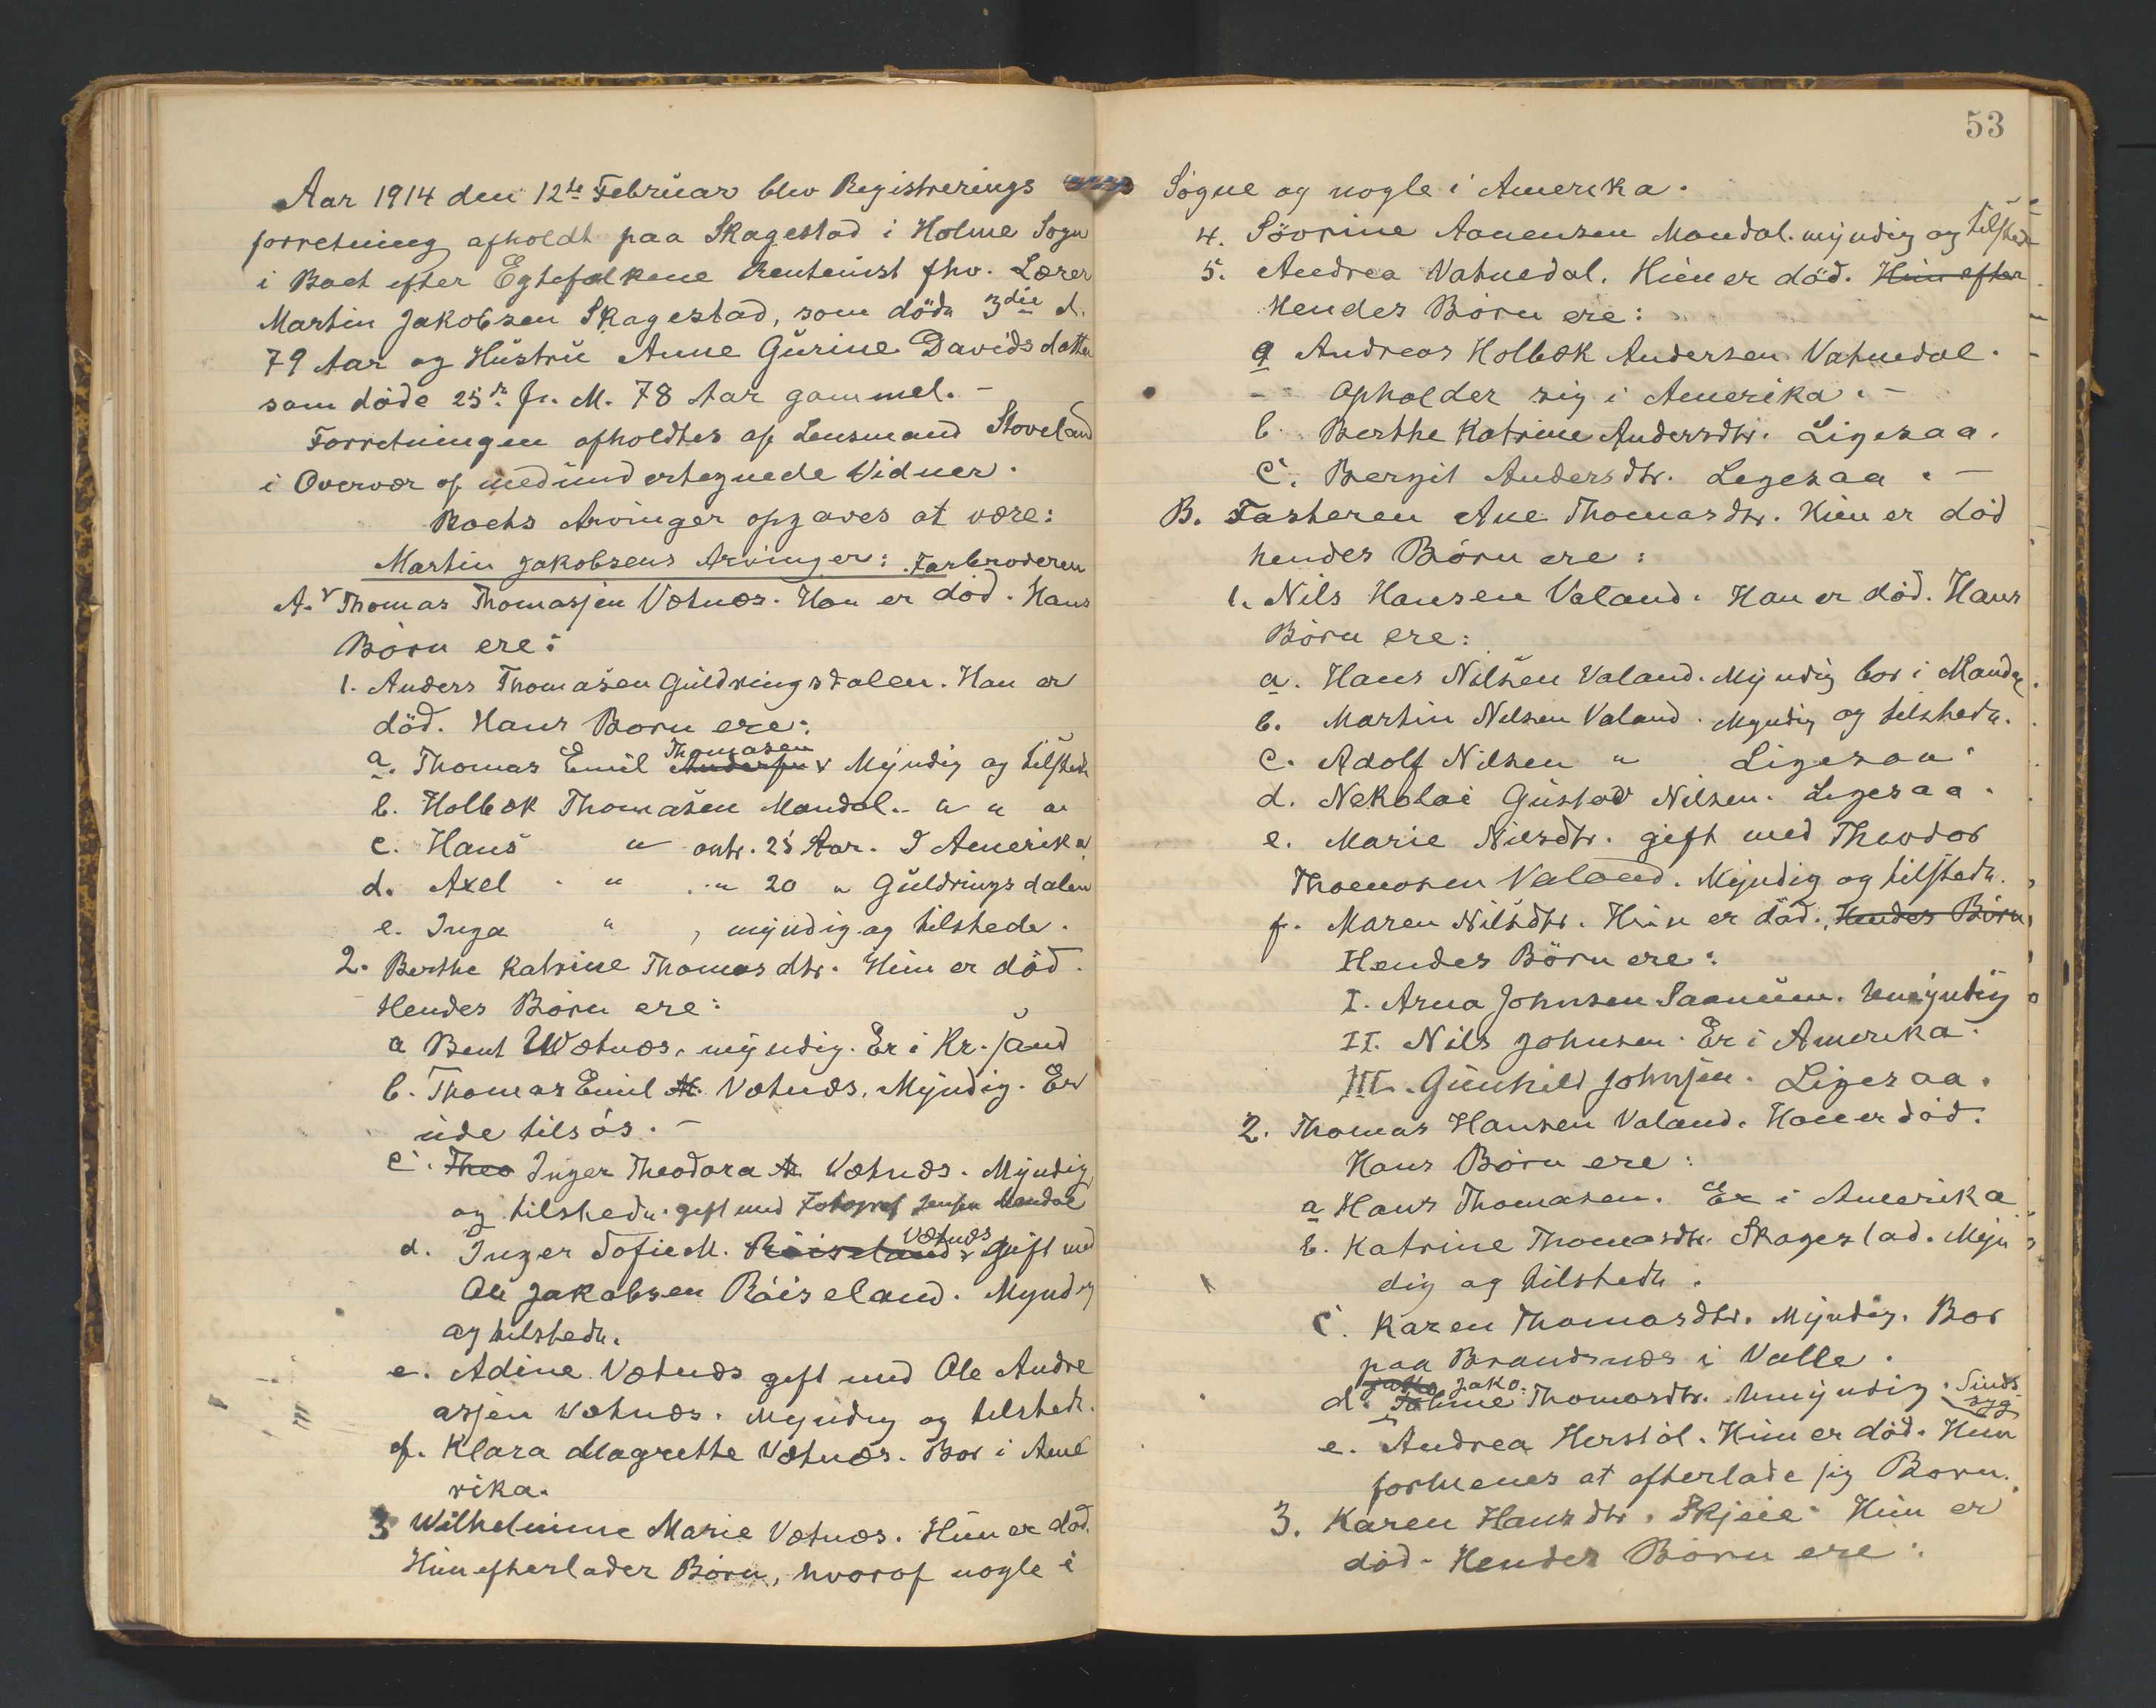 Aar 1914 den 12te Februar blev Registrerings
forretning afholdt paa Skagestad i Holme Sogn
i Boet efter Egtefolkene Rentenist fhv. Lærer
Martin Jakobsen Skagestad, som döde 3die d.
79 Aar og Hustru Anne Gurine Davidsdatter
som döde 25de f. M. 78 Aar gammel. –
Forretningen afholdtes af Lensmand Stoveland
i Overvær af medundertegnede Vidner.
Boets Arvinger opgaves at være:
Martin Jakobsens Arvinger: Farbroderen
A. Thomas Thomassen Vatnæs. Han er död. Hans
Börn ere:
1. Anders Thomasen Guldringsdalen. Han er
död. Hans Born ere:
a. Thomas Emil Andersen Thomasen Myndig og tilstede
b. Holbæk Thomasen Mandal. – " " "
c. Hans " omtr. 25 Aar. I Amerika
d. Axel " " 20 " Guldringsdalen
e. Inga " , myndig og tilstede.
2. Berthe Katrine Thomasdtr. Hun er död.
Hendes Börn ere:
a Bent Watnæs, myndig. Er i Kr.sand
b. Thomas Emil Vatnæs, Myndig. Er
ude tilsös. –
c. Theo Inger Theodora Vatnæs. Myndig
og tilstede. gift med Fotograf Jensen Mandal
d. Inger Tofie M. Röiseland Vatnæs Gift med
Ole Jakobsen Röiseland. Myndig
og tilstede.
e. Adine Vatnæs gift med Ole Andre
assen Vatnæs. Myndig og tilstede.
f. Klara Magrethe Vatnæs. Bor i Ame
rika.
3 Wilhelmine Marie Vatnæs. Hun er död.
Hun efterlader Börn, hvoraf nogle i
53
Sögne og nogle i Amerika.
4. Sövrine Aanensen Mandal. myndig og tilstede
5. Andrea Vatnedal. Hun er död. Hun efter
Hendes Börn ere:
a Andreas Holbæk Andersen Vatnedal.
Opholder sig i Amerika. –
b. Berthe Katrine Andersdtr. Ligesaa.
c. Bergit Andersdtr. Ligesaa. –
B. Fasteren Ane Thomasdtr. Hun er död
hendes Börn ere:
1. Nils Hansen Valand. Han er död. Hans
Börn ere:
a. Hans Nilsen Valand. Myndig bor i Mandal.
b. Martin Nilsen Valand. Myndig og tilstede.
c. Adolf Nilsen " Ligesaa.
d. Nekolai Gustav Nilsen. Ligesaa.
e. Marie Nilsdtr. gift med Theodor
Thomasen Valand. Myndig og tilstede.
f. Maren Nilsdtr. Hun er död. Hendes Börn
Hendes Börn ere:
I. Arna Johnsen Saanum. Umyndig
II. Nils Johnsen. Er i Amerika.
III. Gunhild Johnsen. Ligesaa.
2. Thomas Hansen Valand. Han er död.
Hans Börn ere:
a Hans Thomasen. Er i Amerika
b. Katrine Thomasdtr. Skagestad. Myn
dig og tilstede.
c. Karen Thomasdtr. Myndig. Bor
paa Brandsnæs i Valle.
d. Jako Thomasdtr. Umyndig. Sinds
syg
e. Andrea Herstöl. Hun er död. Hun
formenes at efterlade sig Born.
3. Karen Hansdtr. Skjeie. Hun er
död. Hendes Börn ere: